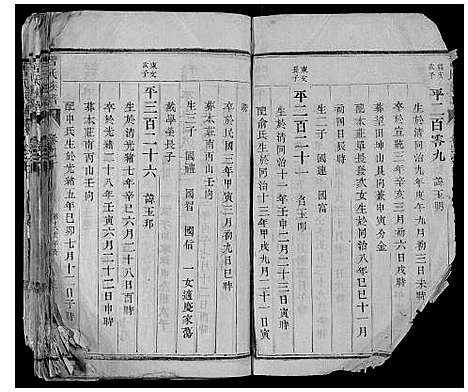 平二百零九 諱玉明
生於清同治九年庚午九月初三日未時
卒於宣統三年辛亥三月初六日戌時
葬望田坤山艮向兼丑寅分金
配 氏女生於同治八年己巳十一月
初四日辰時
生二子 國連 國富
平二百二十一 名玉郎
生於清同治十一年壬申二月二十三日
配俞氏生於同治十三年甲戌九月二十二日寅
時
卒於民國三年甲寅三月初九日巳時
葬本莊南丙山壬向
生三子 國璉 國智 國信 一女適慶家蕩
戴學榮長子
平三百二十六 諱玉邦
生於清光緒七年辛巳六月二十八日酉時
卒於光緒二十八年壬寅六月二十二日申時
葬本莊南丙山壬向
配申氏生於光緒五年己卯七月十二日子時